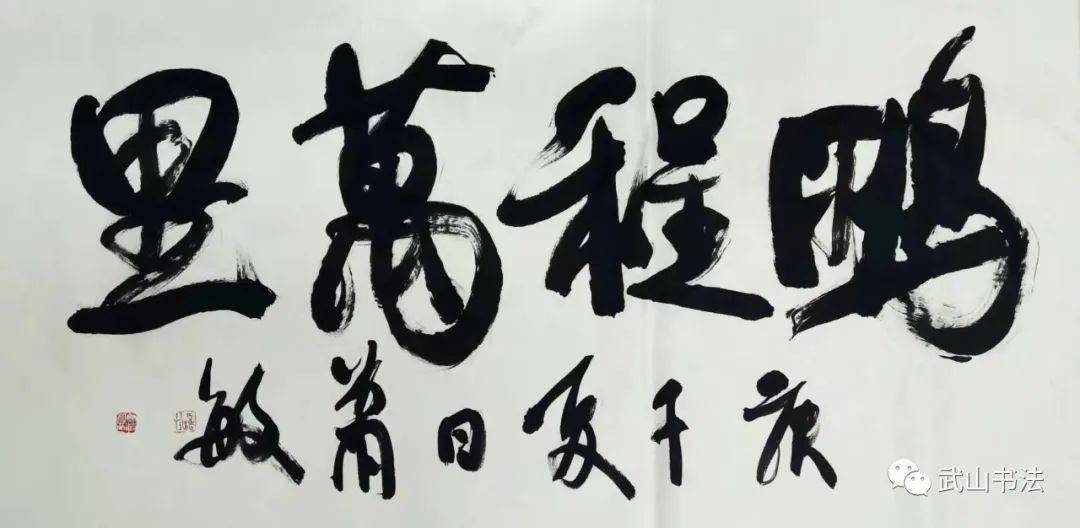 鵬程萬里
庚子夏日敏
武山书法